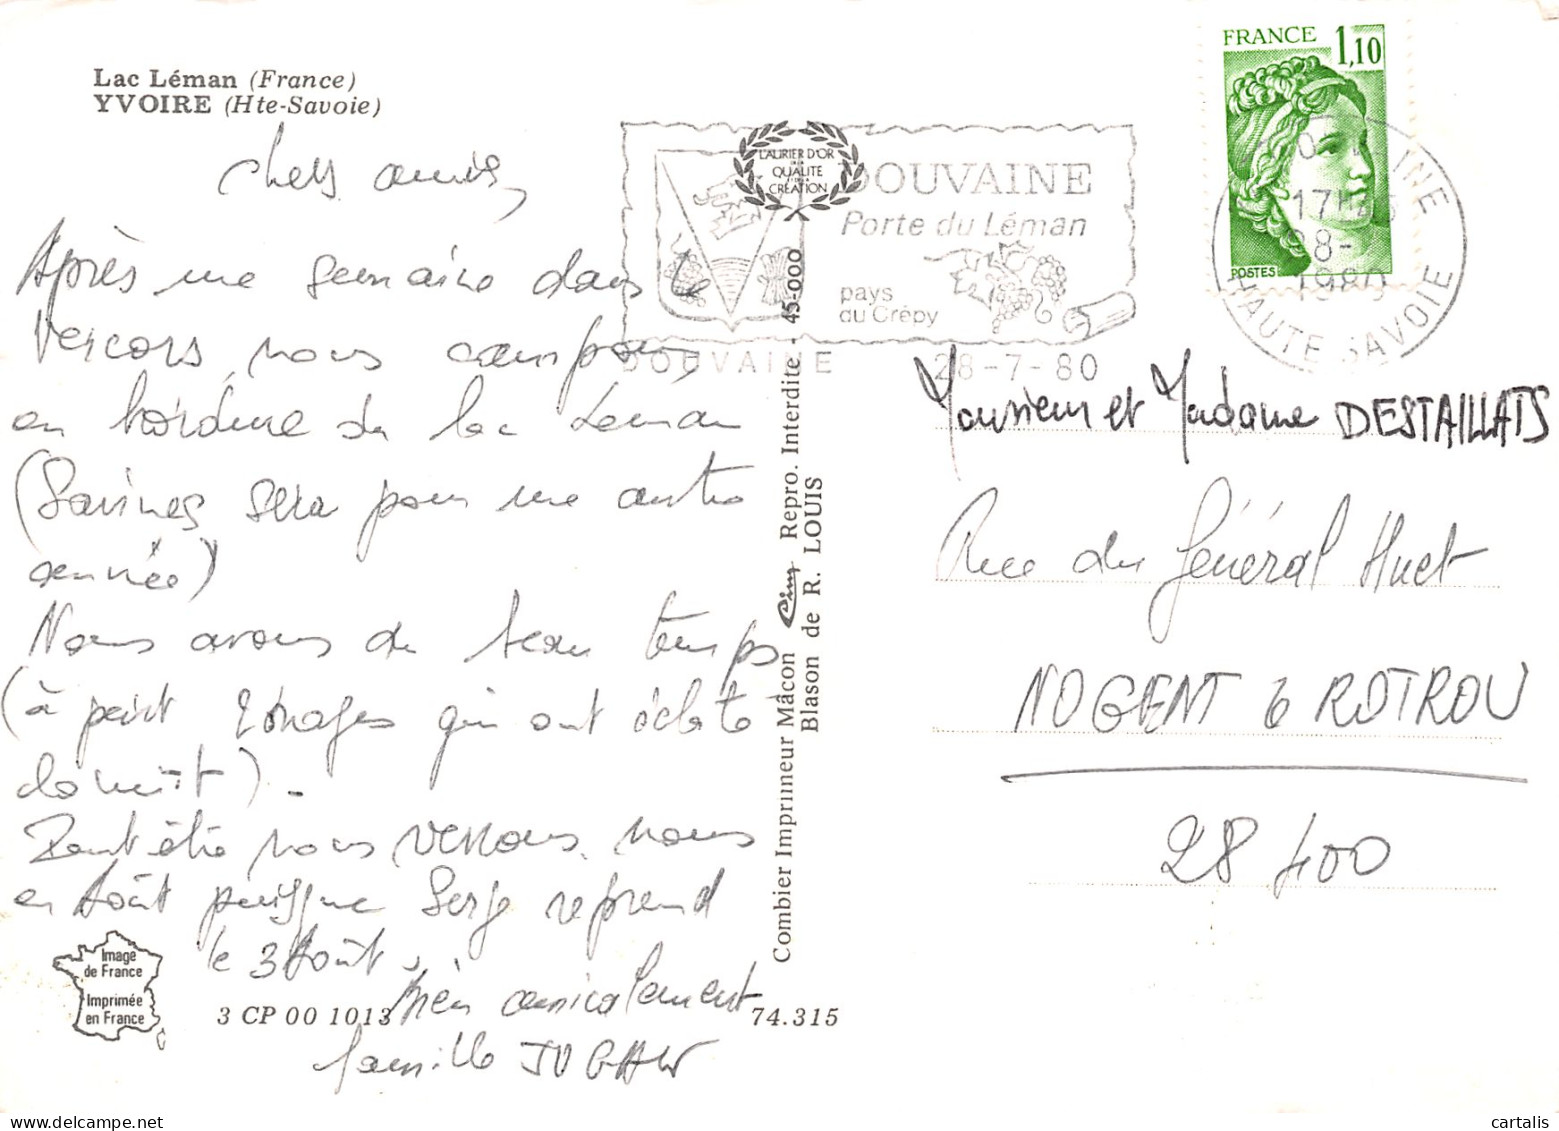 Lac Léman (France)
YVOIRE (Hte-Savoie)
Chers amis,
Après une semaine dans le
Vercors, nous campons
en bordure du lac Leman
(Savines sera pour une autre
année)
Nous avons du beau temps
(à peine 2 orages qui ont éclaté
la nuit).
Peut être nous verrons nous
en Août puisque Serge reprend
le 3 Août,
Bien amicalement
famille
Image
de France
Imprimée
en France
3 CP 00 1013
74.315
Combier Imprimeur Mâcon Cim Repro. Interdite - 45-000
Blason de R. LOUIS
LAURIER D'OR
DE LA
QUALITÉ
CRÉATION
DOUVAINE
Porte du Léman
pays
du Crépy
DOUVAINE
28-7-80
FRANCE 1,10
POSTES
17H45
28-
1980
HAUTE SAVOIE
Monsieur et Madame DESTAILLATS
Rue du Général Huet
NOGENT le ROTROU
28 400
cartalis